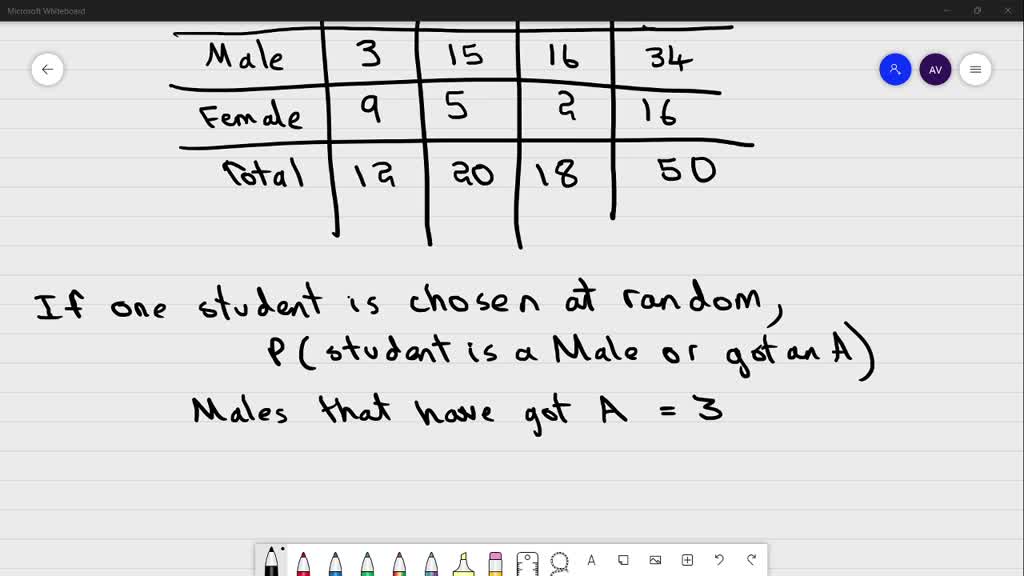 Microsoft Whiteboard
AV
Male 3 15 16 34
Female 9 5 2 16
Total 12 20 18 50
If one student is chosen at random,
P (student is a Male or got an A)
Males that have got A = 3
A